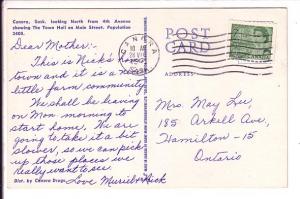 Canora, Sask. looking North from 4th Avenue
showing The Town Hall on Main Street. Population
2600.
POST
CARD
ADDRESS
CANORA
Dear Mother:-
This is Nick's home
town and it is a nice
little farm community.
We shall be leaving
on Mon morning to
start home. We are
going to take it a bit
slower, so we can pick
up those places we
really want to see.
Love Muriel & Nick
Dist. by Canora Drugs.
Mrs. May Lu,
185 Arkell Ave,
Hamilton - 15
Ontario